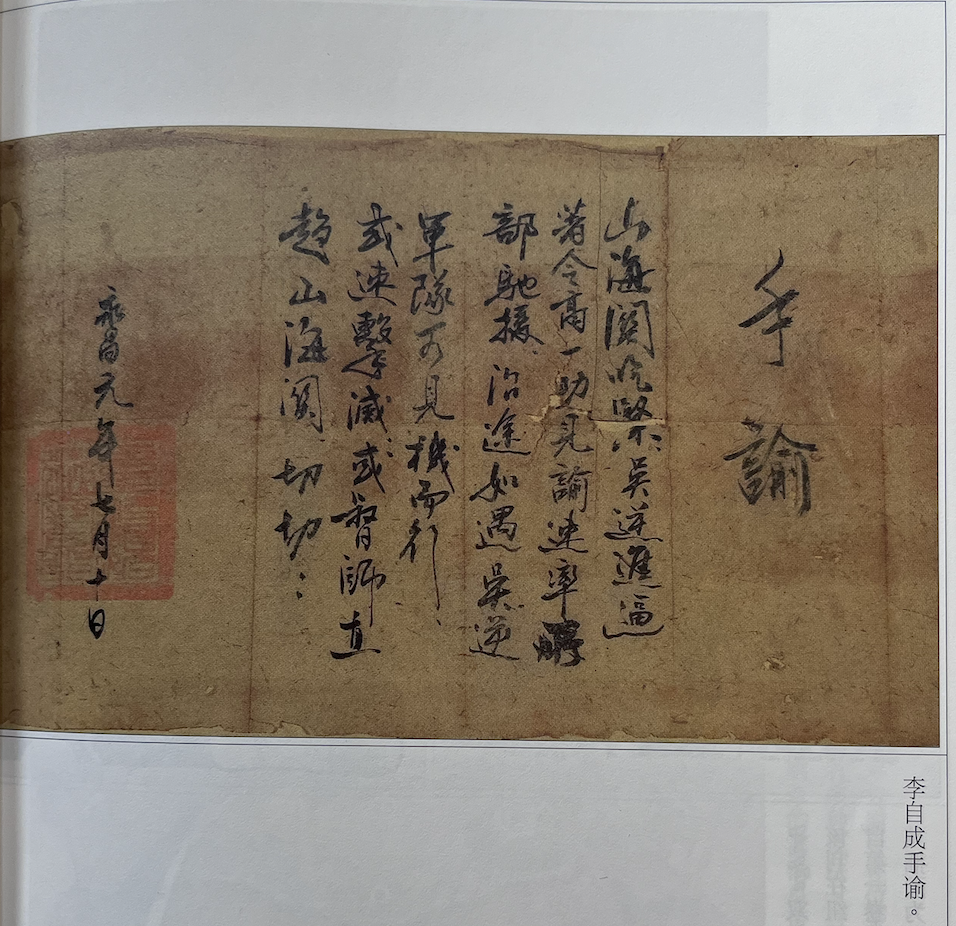 手諭
山海関吃緊吳逆進逼
著令高一功見諭速率
部馳援沿途如遇吳逆
軍隊可見機而行
或速擊滅或督師直
趨山海関切切
永昌元年七月十日
李自成手谕。